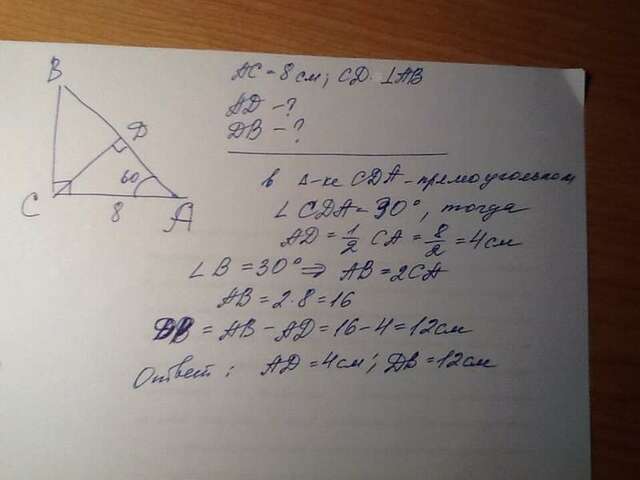 AC = 8 см; CD ⊥ AB
AD - ?
DB - ?
B
D
60
C
8
A
в Δ-ке CDA - прямоугольном
∠ CDA = 90°, тогда
AD = 1/2 CA = 8/2 = 4 см
∠ B = 30° ⇒ AB = 2CA
AB = 2 · 8 = 16
DB = AB - AD = 16 - 4 = 12 см
Ответ: AD = 4 см; DB = 12 см